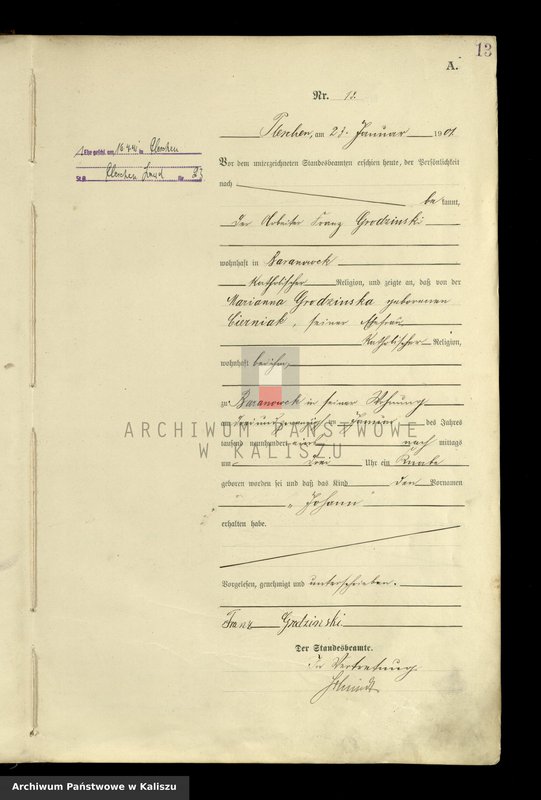 13
A.
Nr. 12.
Pleschen, am 23. Januar 1904
Ehe geschl. am in Pleschen
St.A. Pleschen Land Nr. 23
Vor dem unterzeichneten Standesbeamten erschien heute, der Persönlichkeit
nach be kannt,
der Arbeiter Franz Grodzinski
wohnhaft in Baranowek
katholischer Religion, und zeigte an, daß von der
Marianna Grodzinska geborenen
Cierniak, seiner Ehefrau
katholischer Religion,
wohnhaft bei ihm,
zu Baranowek in seiner Wohnung
am im Januar des Jahres
tausend neunhundert nach mittags
um drei Uhr ein Knabe
geboren worden sei und daß das Kind den Vornamen
„Johann"
erhalten habe.
Vorgelesen, genehmigt und unterschrieben.
Franz Grodzinski
Der Standesbeamte.
In Vertretung
Schmidt
ARCHIWUM PAŃSTWOWE
W KALISZU
Archiwum Państwowe w Kaliszu